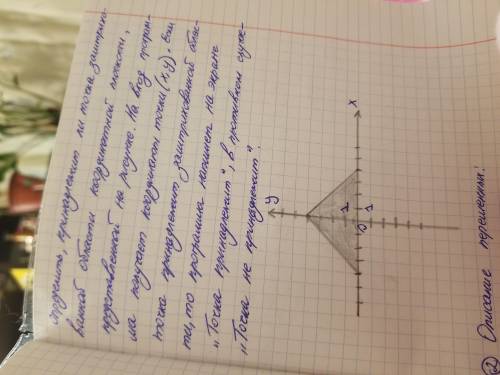 определить, принадлежит ли точка заштрихо-
ванной области координатной плоскости,
представленной на рисунке. На вход програм-
ма получает координаты точки (x, y). Если
точка принадлежит заштрихованной облас-
ти, то программа напишет на экране
„Точка принадлежит", в противном случае
„Точка не принадлежит".
y
x
1
0 1
② Описание переменных: